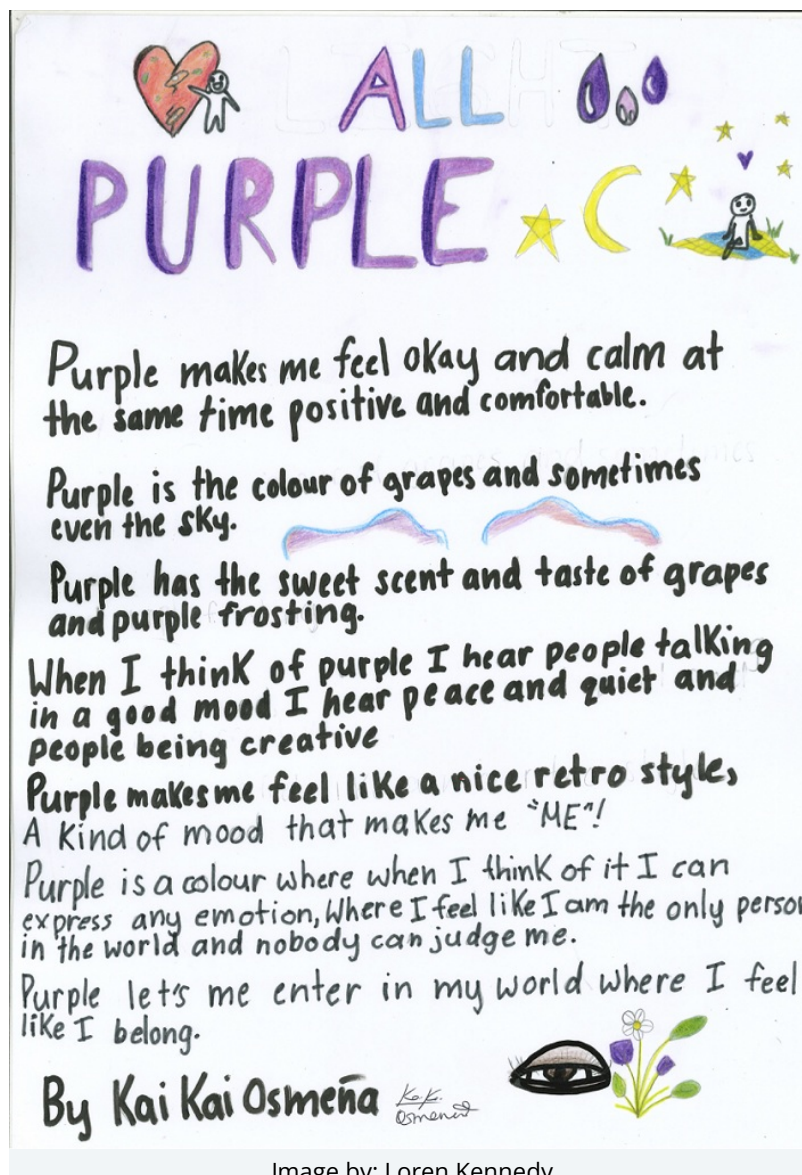 ALL
PURPLE
Purple makes me feel okay and calm at
the same time positive and comfortable.
Purple is the colour of grapes and sometimes
even the sky.
Purple has the sweet scent and taste of grapes
and purple frosting.
When I think of purple I hear people talking
in a good mood I hear peace and quiet and
people being creative
Purple makes me feel like a nice retro style,
A kind of mood that makes me "ME"!
Purple is a colour where when I think of it I can
express any emotion, Where I feel like I am the only person
in the world and nobody can judge me.
Purple let's me enter in my world where I feel
like I belong.
By Kai Kai Osmeña
Osmena
Image by: Loren Kennedy